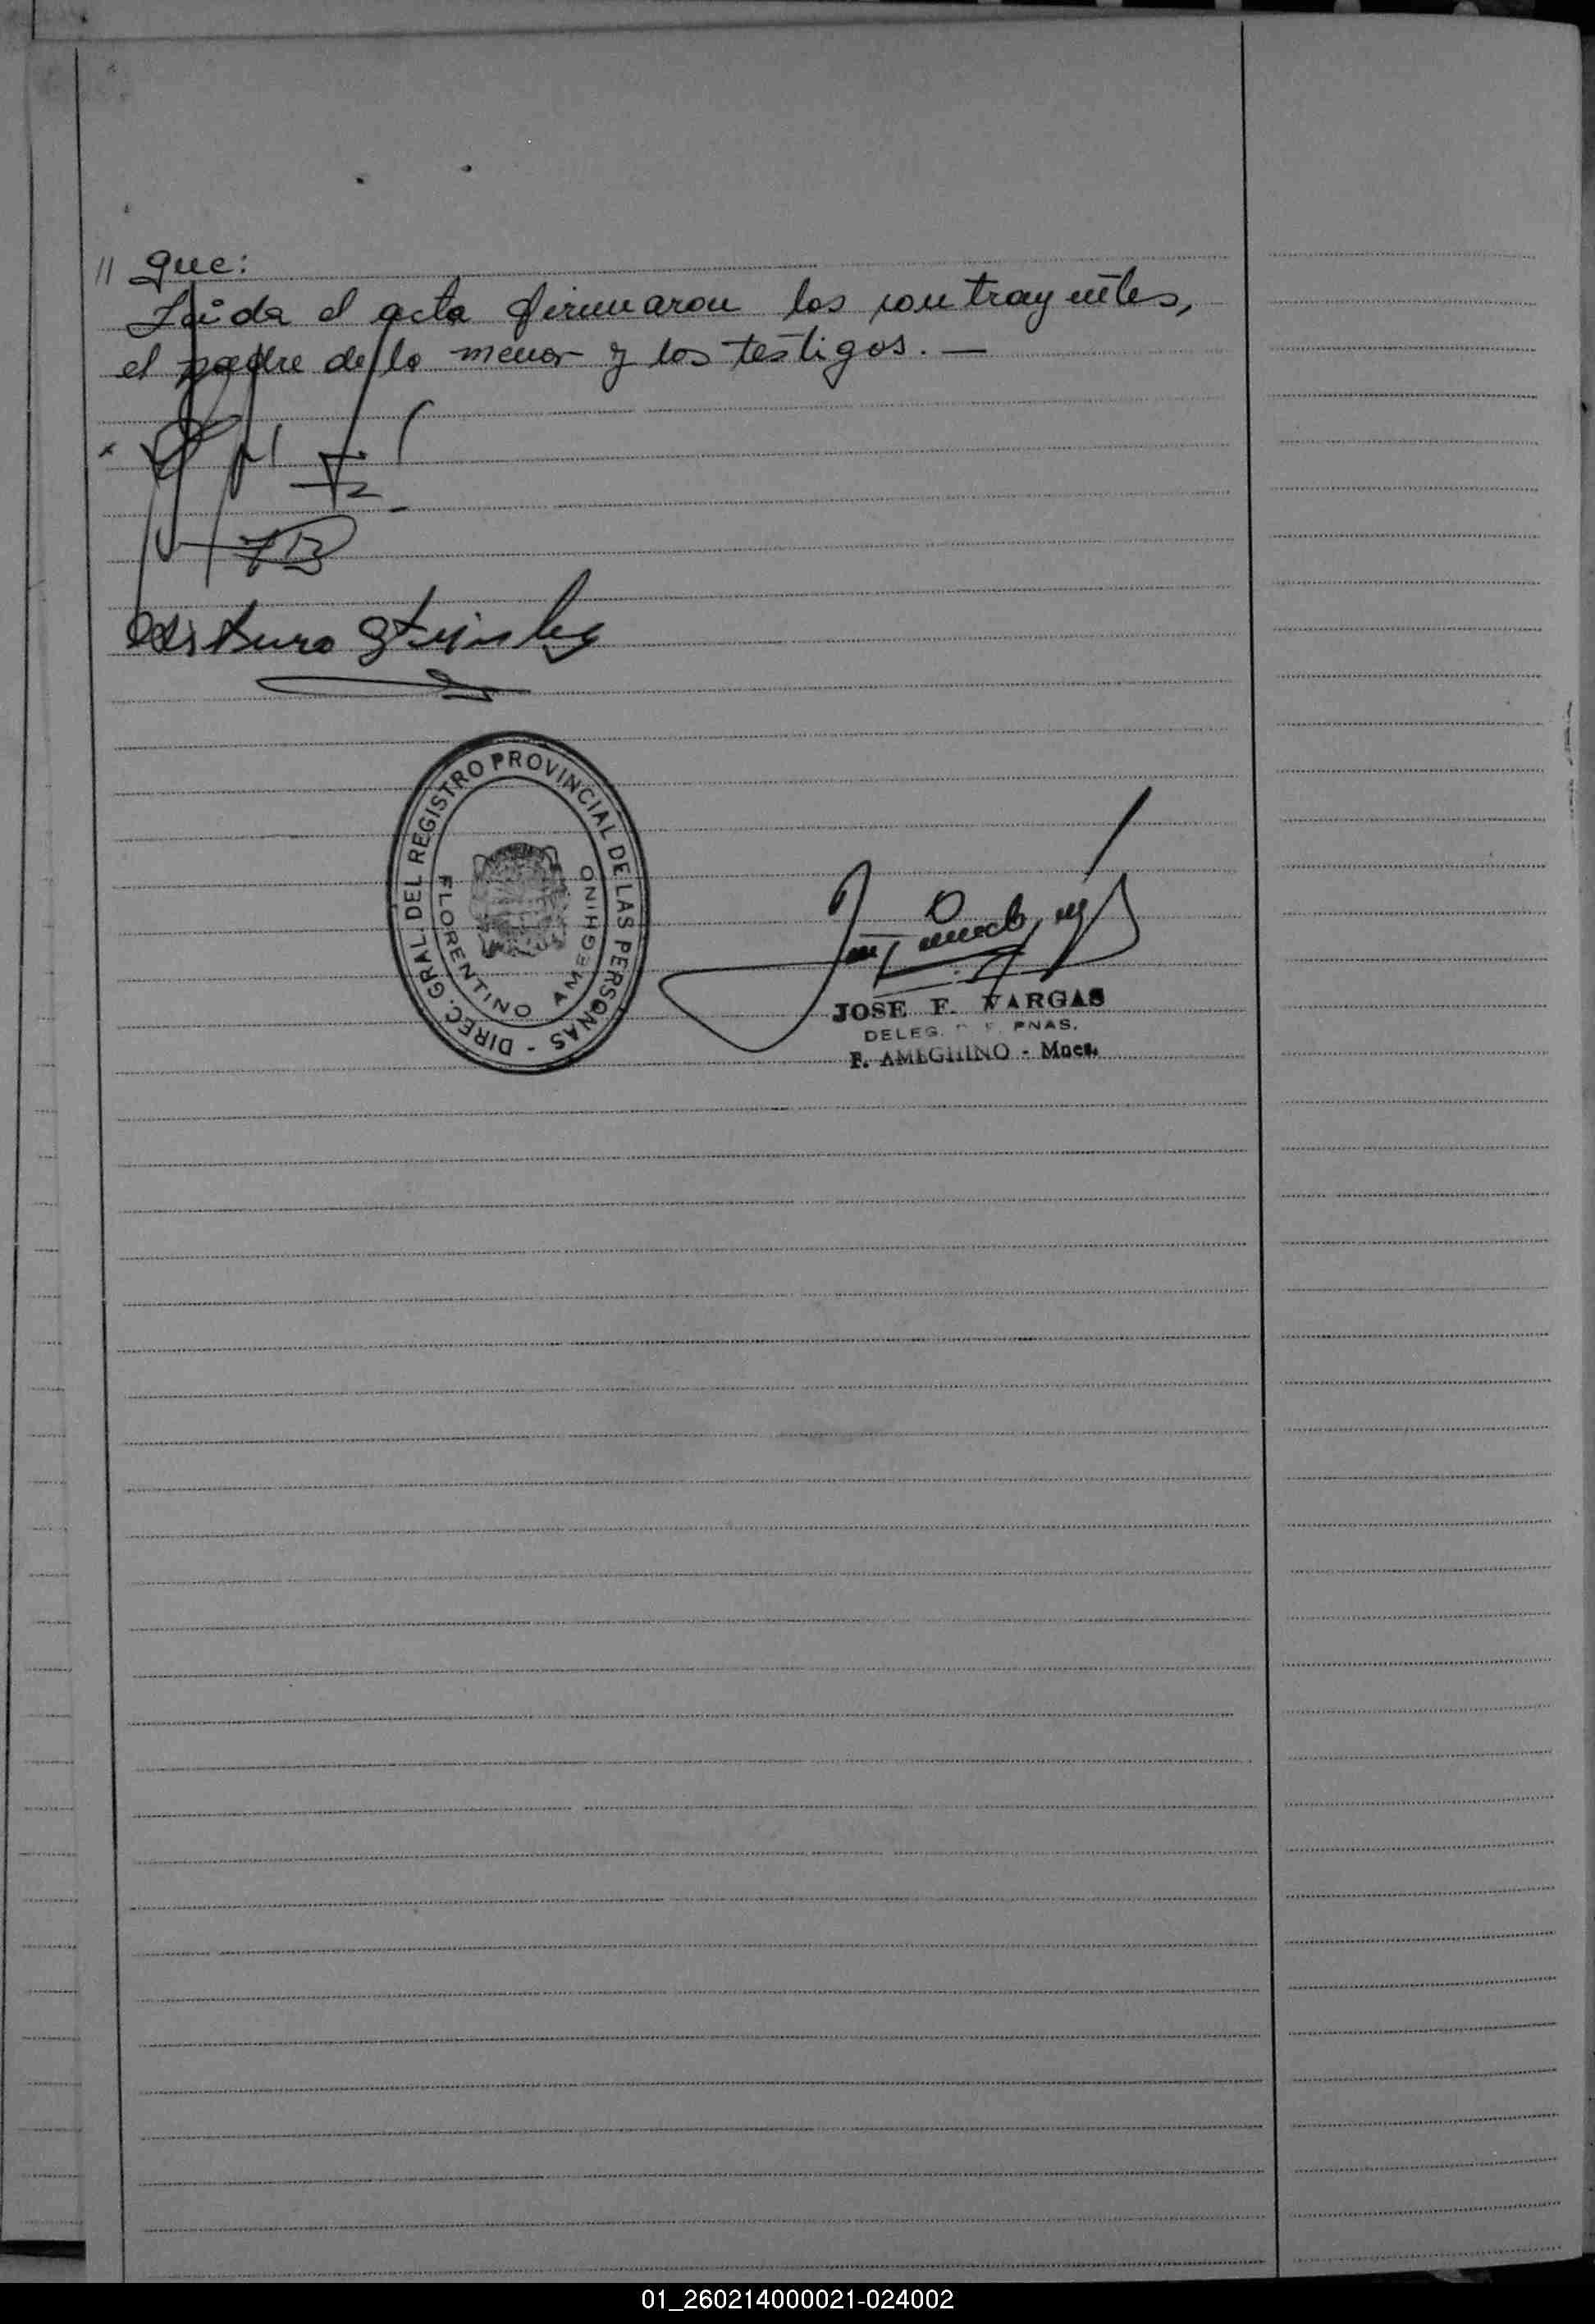 // que:
Leida el acta firmaron los contrayentes,
el padre de la menor y los testigos. —
Arturo
DIREC. GRAL. DEL REGISTRO PROVINCIAL DE LAS PERSONAS -
FLORENTINO AMEGHINO
JOSE F. VARGAS
DELEG. PNAS.
F. AMEGHINO - Mnes.
01_260214000021-024002